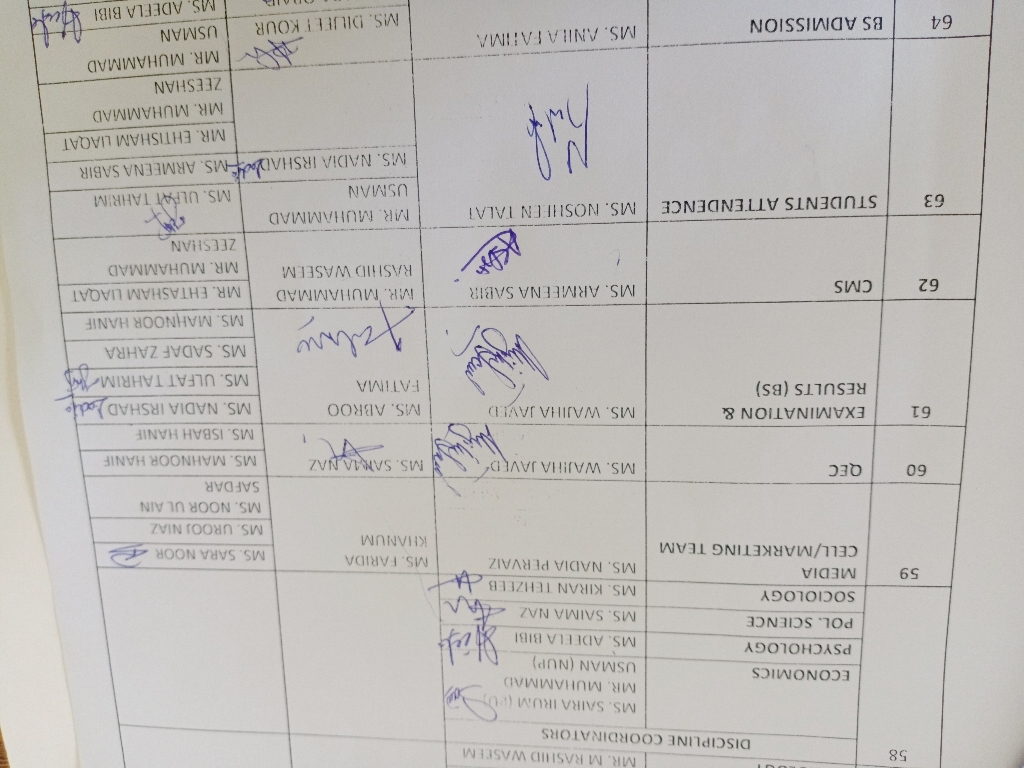 MR. M RASHID WASEEM
58
DISCIPLINE COORDINATORS
ECONOMICS
MS. SAIRA IRUM (PU)
MR. MUHAMMAD
USMAN (NUP)
PSYCHOLOGY
MS. ADEELA BIBI
POL. SCIENCE
MS. SAIMA NAZ
SOCIOLOGY
MS. KIRAN TEHZEEB
59
MEDIA
CELL/MARKETING TEAM
MS. NADIA PERVAIZ
MS. FARIDA
KHANUM
MS. SARA NOOR
MS. UROOJ NIAZ
MS. NOOR UL AIN
SAFDAR
60
QEC
MS. WAJIHA JAVED
MS. SAIMA NAZ
MS. MAHNOOR HANIF
MS. ISBAH HANIF
61
EXAMINATION &
RESULTS (BS)
MS. WAJIHA JAVED
MS. ABROO
FATIMA
MS. NADIA IRSHAD
MS. ULFAT TAHRIM
MS. SADAF ZAHRA
MS. MAHNOOR HANIF
62
CMS
MS. ARMEENA SABIR
MR. MUHAMMAD
RASHID WASEEM
MR. EHTASHAM LIAQAT
MR. MUHAMMAD
ZEESHAN
63
STUDENTS ATTENDENCE
MS. NOSHEEN TALAT
MR. MUHAMMAD
USMAN
MS. NADIA IRSHAD
MS. ULFAT TAHRIM
MS. ARMEENA SABIR
MR. EHTISHAM LIAQAT
MR. MUHAMMAD
ZEESHAN
64
BS ADMISSION
MS. ANILA FATIMA
MS. DILJEET KOUR
MR. MUHAMMAD
USMAN
MS. ADEELA BIBI